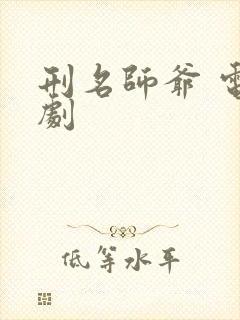 刑名師爺 電
劇
低等水平